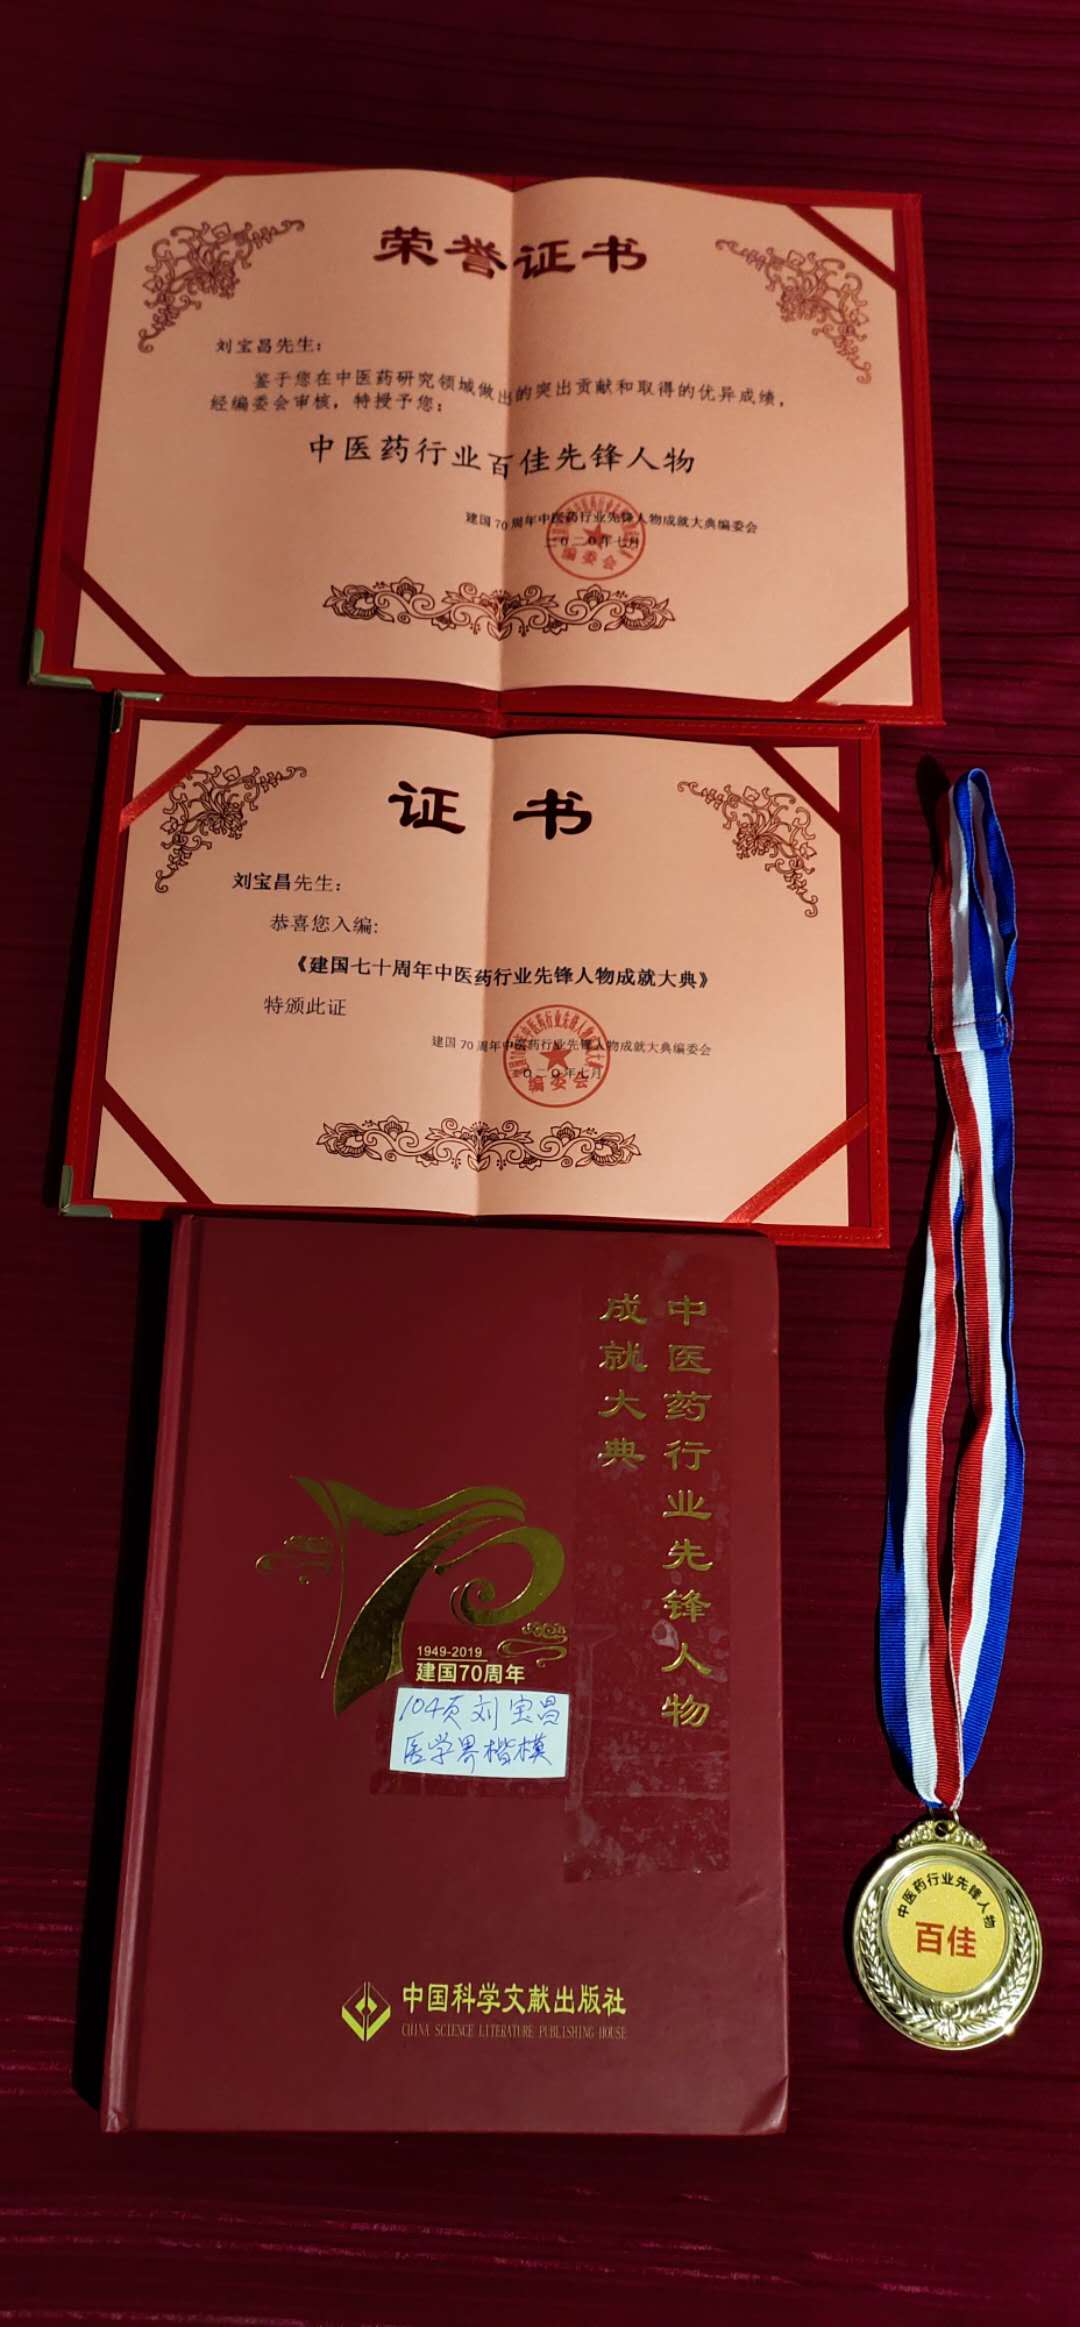 荣誉证书
刘宝昌先生：
鉴于您在中医药研究领域做出的突出贡献和取得的优异成绩，
经编委会审核，特授予您：
中医药行业百佳先锋人物
建国70周年中医药行业先锋人物成就大典编委会
二〇二〇年七月
编委会
证 书
刘宝昌先生：
恭喜您入编：
《建国七十周年中医药行业先锋人物成就大典》
特颁此证
建国 70 周年中医药行业先锋人物成就大典编委会
〇二〇年七月
编委会
中医药行业先锋人物
成就大典
70
1949-2019
建国70周年
104页刘宝昌
医学界楷模
中国科学文献出版社
CHINA SCIENCE LITERATURE PUBLISHING HOUSE
中医药行业先锋人物
百佳